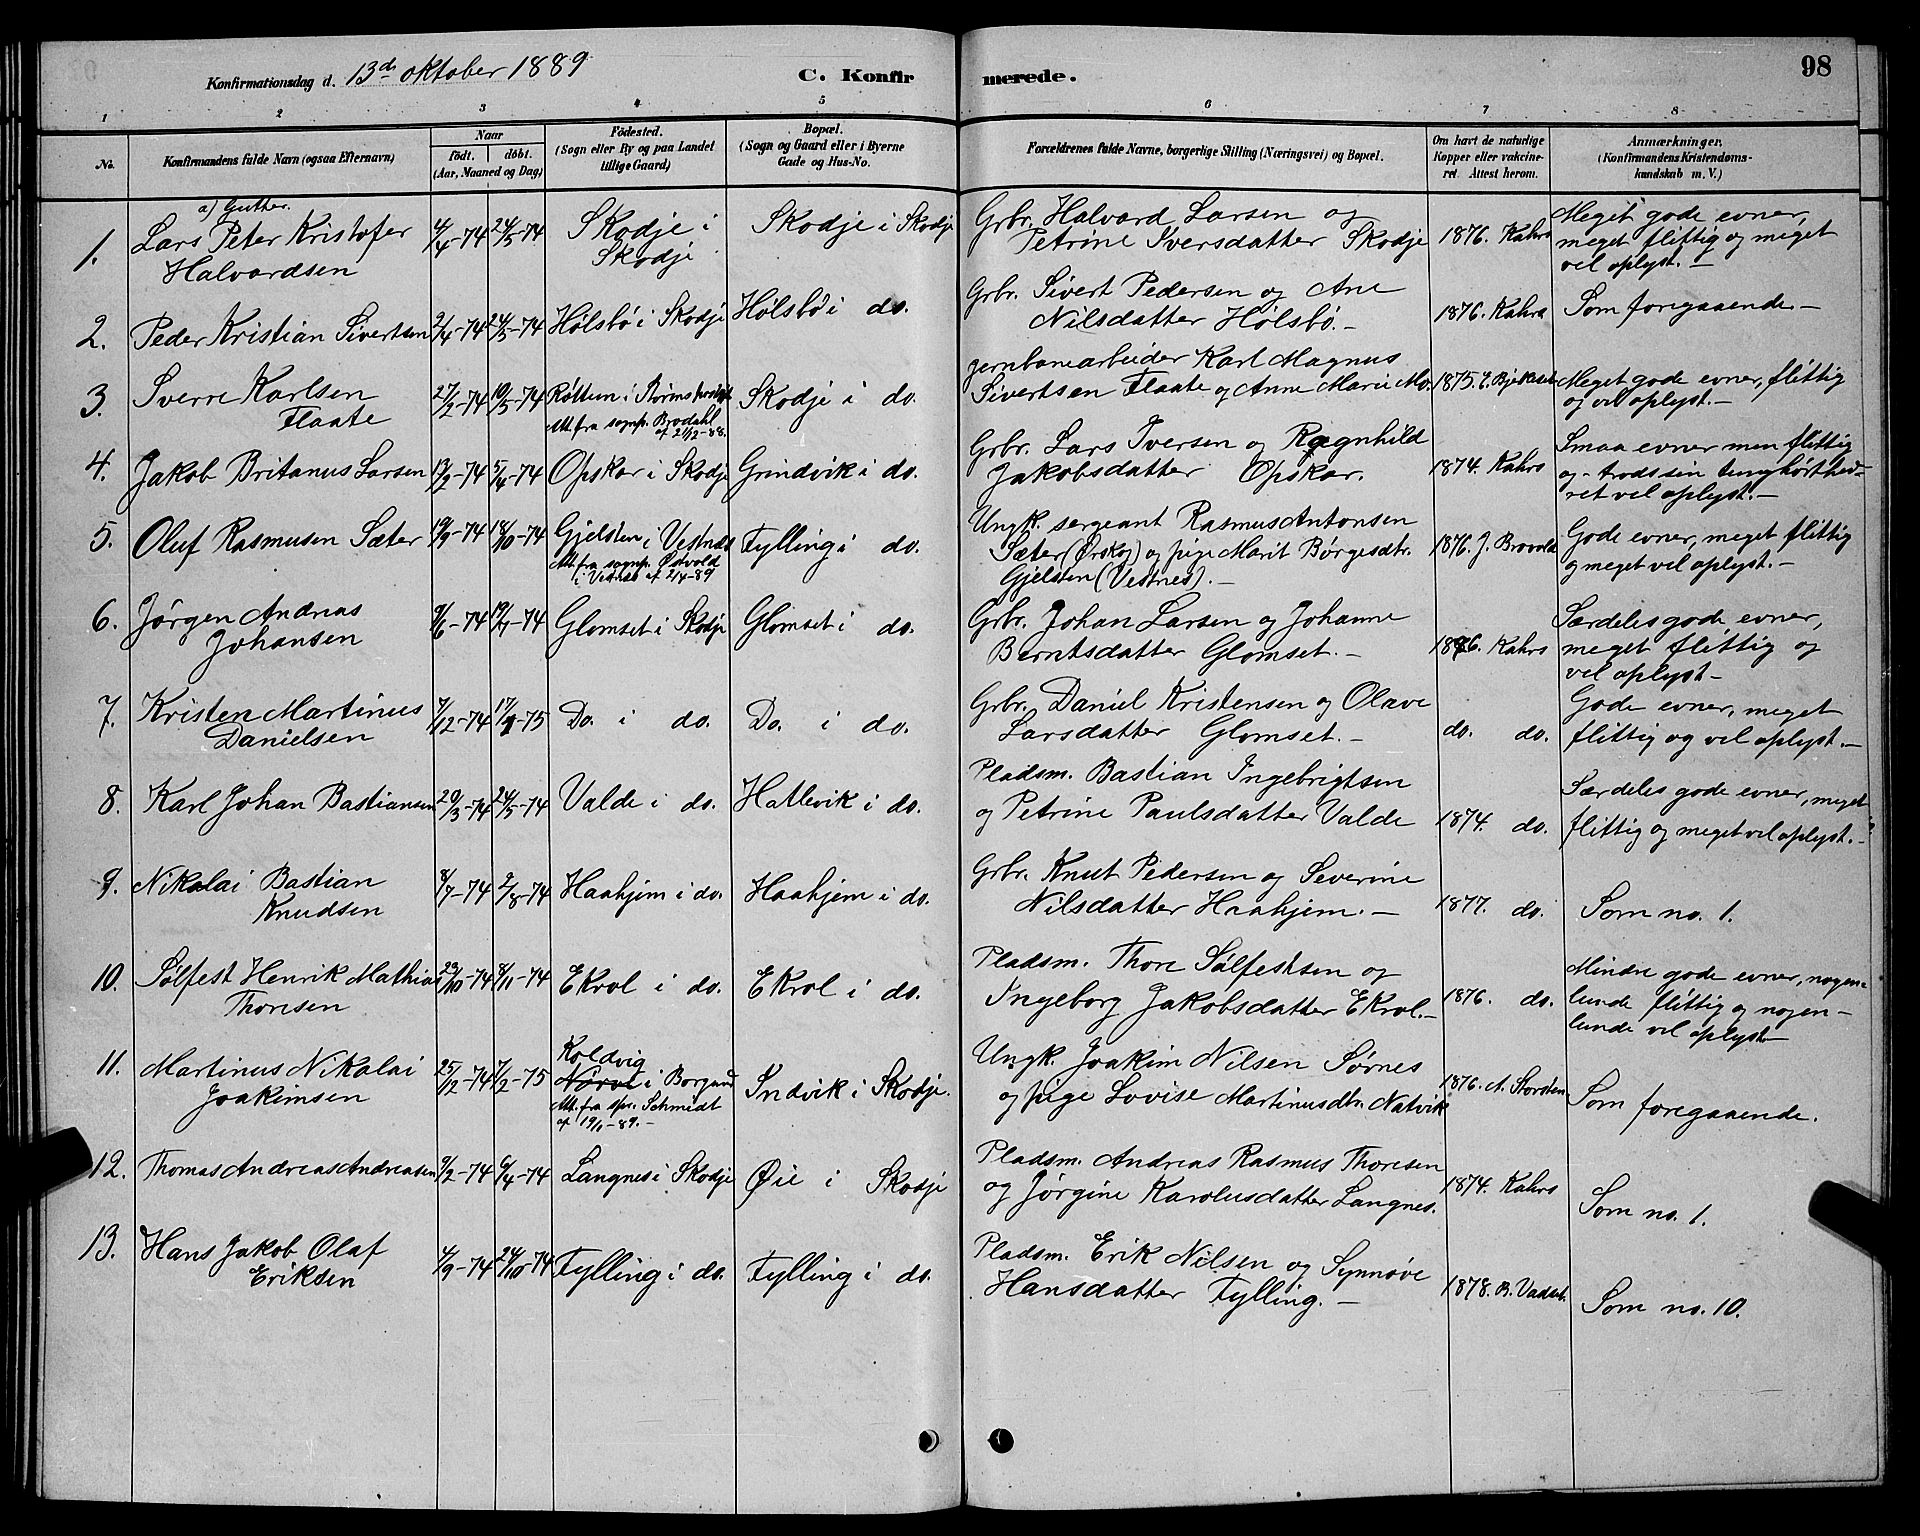 Konfirmationsdag d. 13de oktober 1889
C. Konfirmerede.
98
1 2 3 4 5 6 7 8
No.
Konfirmandens fulde Navn (ogsaa Efternavn)
Naar
født. døbt.
(Aar, Maaned og Dag)
Fødested.
(Sogn eller By og paa Landet
tillige Gaard.)
Bopæl.
(Sogn og Gaard eller i Byerne
Gade og Hus-No.
Forældrenes fulde Navne, borgerlige Stilling (Næringsvei) og Bopæl.
Om havt de naturlige
Kopper eller vakcine-
ret. Attest herom.
Anmærkninger.
(Konfirmandens Kristendoms-
kundskab m. V.)
a) Gutter.
1. Lars Peter Kristofer
Halvardsen
4/4-74 24/5-74
Skodje i
Skodje
Skodje i Skodje
Grbr. Halvard Larsen og
Petrine Iversdatter Skodje
1876. Kahrs
Meget gode evner,
meget flittig og meget
vel oplyst.-
2. Peder Kristian Sivertsen
2/4-74 24/5-74
Hølsbø i Skodje
Hølsbø i do.
Grbr. Sivert Pedersen og Ane
Nilsdatter Hølsbø.-
1876. Kahrs
Som foregaaende.-
3. Sverre Karlsen
Flaate
27/2-74 10/5-74
Røttum i Størens
Att. fra sognp. Brodahl
af 21/12-88.
Skodje i do.
Jernbanearbeider Karl Magnus
Sivertsen Flaate og Anne Marie Mo.
1875.
Meget gode evner, flittig
og vel oplyst.-
4. Jakob Britanus Larsen
13/2-74 5/4-74
Opskar i Skodje
Grindvik i do.
Grbr. Lars Iversen og Ragnhild
Jakobsdatter Opskar.
1874. Kahrs
Smaa evner men flittig
og trods sin tunghørthed
ret vel oplyst.-
5. Oluf Rasmusen Sæter
19/9-74 18/10-74
Gjelsten i Vestnæs
Att. fra sognp. Østvold
i Vestnæs af 2/4-89
Fylling i do.
Ungk. sergeant Rasmus Antonsen
Sæter (Ørskog) og pige Marit Børgesdtr.
Gjelsten (Vestnes).-
1876. J. Brovold
Gode evner, meget flittig
og meget vel oplyst.-
6. Jørgen Andreas
Johansen
9/6-74 19/7-74
Glomset i Skodje
Glomset i do.
Grbr. Johan Larsen og Johanne
Berntsdatter Glomset.-
1876. Kahrs
Særdeles gode evner,
meget flittig og
vel oplyst-
7. Kristen Martinus
Danielsen
7/12-74 17/1-75
Do. i do.
Do. i do.
Grbr. Daniel Kristensen og Olave
Larsdatter Glomset.-
do. do.
Gode evner, meget
flittig og vel oplyst.-
8. Karl Johan Bastiansen
20/3-74 24/5-74
Valde i do.
Hatlevik i do.
Pladsm. Bastian Ingebrigtsen
og Petrine Paulsdatter Valde
1874. do.
Særdeles gode evner, meget
flittig og meget vel oplyst.-
9. Nikolai Bastian
Knudsen
8/7-74 2/8-74
Haahjem i do.
Haahjem i do.
Grbr. Knut Pedersen og Severine
Nilsdatter Haahjem.-
1877. do.
Som no. 1.
10. Sølfest Henrik Mathias
Thoresen
22/10-74 8/11-74
Ekrol i do.
Ekrol i do.
Pladsm. Thore Sølfestsen og
Ingeborg Jakobsdatter Ekrol.-
1876. do.
Mindre gode evner, nogen-
lunde flittig og nogen-
lunde vel oplyst-
11. Martinus Nikolai
Joakimsen
25/12-74 7/2-75
Koldvig
Nørve i Borgund
Att. fra spr. Schmidt
af 19/1-89.-
Indvik i Skodje.
Ungk. Joakim Nilsen Sørnes
og pige Lovise Martinusdtr. Natvik
1876.
Som foregaaende.
12. Thomas Andreas Andreasen
9/2-74 6/4-74
Langnes i Skodje
Øie i Skodje
Pladsm. Andreas Rasmus Thoresen
og Jørgine Karolusdatter Langnes.
1874. Kahrs
Som no. 1.
13. Hans Jakob Olaf
Eriksen
4/9-74 24/10-74
Fylling i do.
Fylling i do.
Pladsm. Erik Nilsen og Synnøve
Hansdatter Fylling.-
1878.
Som no. 10.